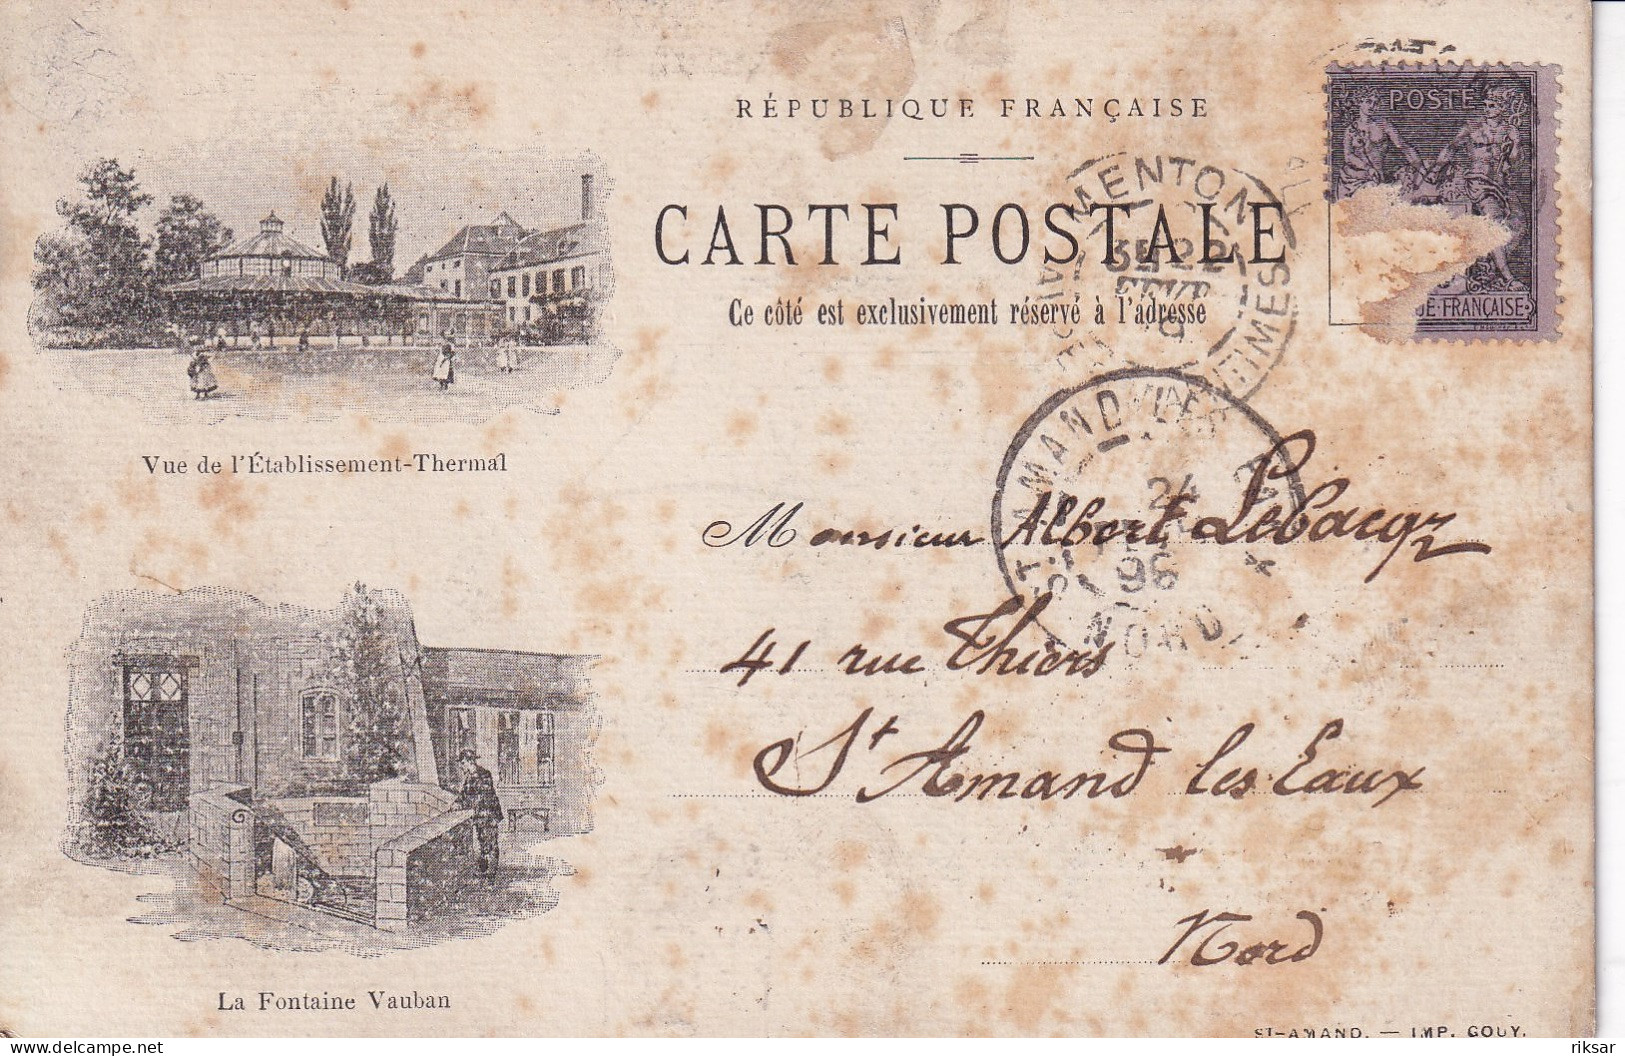 RÉPUBLIQUE FRANÇAISE
CARTE POSTALE
Ce côté est exclusivement réservé à l'adresse
POSTE
UE FRANÇAISE
MENTON
22
MES
Vue de l'Établissement-Thermal
ST AMAND LES EAUX
24
96
NORD
Monsieur Albert Lebacqz
41 rue Thiers
St Amand les Eaux
Nord
La Fontaine Vauban
ST-AMAND. — IMP. GOUY.
riksar